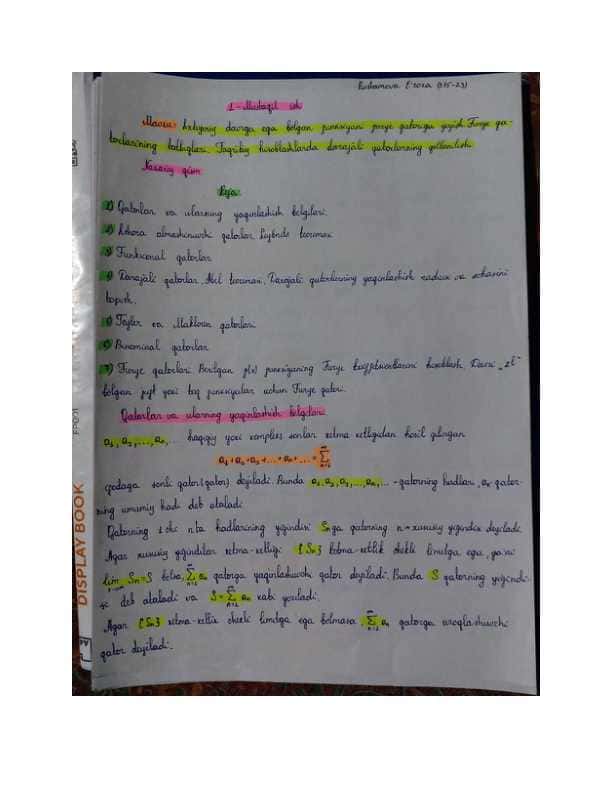 Rustamova Firoza (915-23)
1-Mustaqil ish
Mavzu: Ixtiyoriy davrga ega bolgan funksiyani furye qatoriga yoyish. Furye qa-
torlarining tatbiqlari. Taqribiy hisoblashlarda darajali qatorlarning qollanilishi.
Nazariy qism
Reja:
1) Qatorlar va ularning yaqinlashish belgilari.
2) Ishora almashinuvchi qatorlar. Leybnits teoremasi
3) Funksional qatorlar
4) Darajali qatorlar. Abel teoremasi. Darajali qatorlarning yaqinlashish radiusi va sohasini
topish.
5) Teylor va Makloren qatorlari
6) Binominal qatorlar
7) Furye qatorlari. Berilgan f(x) funksiyaning Furye koeffitsientlarini hisoblash. Davri „2l"
bolgan juft yoki toq funksiyalar uchun Furye qatori.
Qatorlar va ularning yaqinlashish belgilari
a₁, a₂, ..., aₙ, ... haqiqiy yoki kompleks sonlar ketma-ketligidan hosil qilingan
a₁ + a₂ + a₃ + ... + aₙ + ... = ∑
ifodaga sonli qator (qator) deyiladi. Bunda a₁, a₂, a₃, ..., aₙ, ... - qatorning hadlari, aₙ qator-
ning umumiy hadi deb ataladi.
Qatorning 1-chi n ta hadlarining yigindisi Sₙ ga qatorning n-xususiy yigindisi deyiladi.
Agar xususiy yigindilar ketma-ketligi {Sₙ} ketma-ketlik chekli limitga ega, ya'ni
lim Sₙ = S bolsa, ∑ₙ₌₁^∞ aₙ qatorga yaqinlashuvchi qator deyiladi. Bunda S qatorning yigindi-
si deb ataladi va S = ∑ₙ₌₁^∞ aₙ kabi yoziladi.
Agar {Sₙ} ketma-ketlik chekli limitga ega bolmasa, ∑ₙ₌₁^∞ aₙ qatorga uzoqlashuvchi
qator deyiladi.
DISPLAY BOOK